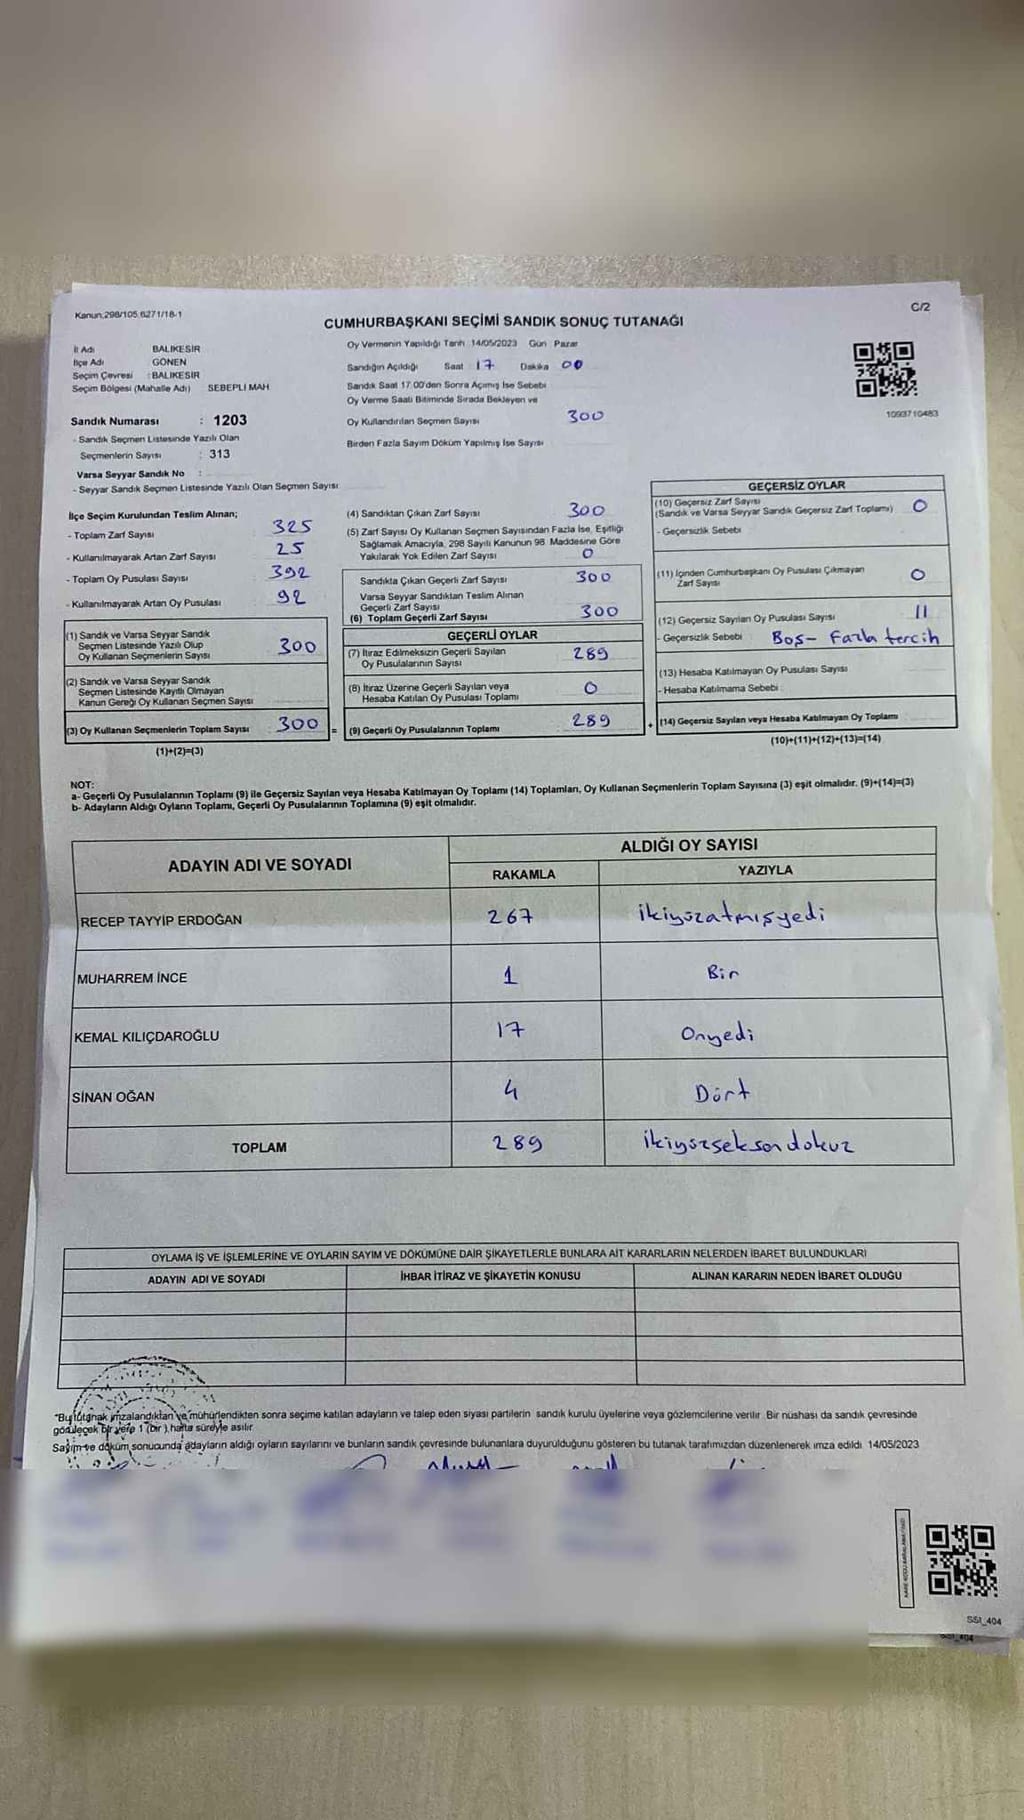 Kanun,298/105,6271/18-1
C/2
CUMHURBAŞKANI SEÇİMİ SANDIK SONUÇ TUTANAĞI
İl Adı BALIKESİR
İlçe Adı GÖNEN
Seçim Çevresi : BALIKESİR
Seçim Bölgesi (Mahalle Adı) SEBEPLİ MAH
Oy Vermenin Yapıldığı Tarih 14/05/2023 Gün Pazar
Sandığın Açıldığı Saat 17 Dakika 00
Sandık Saat 17.00'den Sonra Açımış İse Sebebi
Oy Verme Saati Bitiminde Sırada Bekleyen ve
Oy Kullandırılan Seçmen Sayısı 300
Birden Fazla Sayım Döküm Yapılmış İse Sayısı
1093710483
Sandık Numarası : 1203
- Sandık Seçmen Listesinde Yazılı Olan
Seçmenlerin Sayısı : 313
Varsa Seyyar Sandık No :
- Seyyar Sandık Seçmen Listesinde Yazılı Olan Seçmen Sayısı
İlçe Seçim Kurulundan Teslim Alınan;
- Toplam Zarf Sayısı 325
- Kullanılmayarak Artan Zarf Sayısı 25
- Toplam Oy Pusulası Sayısı 392
- Kullanılmayarak Artan Oy Pusulası 92
(1) Sandık ve Varsa Seyyar Sandık
Seçmen Listesinde Yazılı Olup
Oy Kullanan Seçmenlerin Sayısı 300
(2) Sandık ve Varsa Seyyar Sandık
Seçmen Listesinde Kayıtlı Olmayan
Kanun Gereği Oy Kullanan Seçmen Sayısı
(3) Oy Kullanan Seçmenlerin Toplam Sayısı 300 =
(1)+(2)=(3)
(4) Sandıktan Çıkan Zarf Sayısı 300
(5) Zarf Sayısı Oy Kullanan Seçmen Sayısından Fazla İse, Eşitliği
Sağlamak Amacıyla, 298 Sayılı Kanunun 98. Maddesine Göre
Yakılarak Yok Edilen Zarf Sayısı 0
Sandıkta Çıkan Geçerli Zarf Sayısı 300
Varsa Seyyar Sandıktan Teslim Alınan
Geçerli Zarf Sayısı
(6) Toplam Geçerli Zarf Sayısı 300
GEÇERLİ OYLAR
(7) İtiraz Edilmeksizin Geçerli Sayılan
Oy Pusulalarının Sayısı 289
(8) İtiraz Üzerine Geçerli Sayılan veya
Hesaba Katılan Oy Pusulası Toplamı 0
(9) Geçerli Oy Pusulalarının Toplamı 289 +
GEÇERSİZ OYLAR
(10) Geçersiz Zarf Sayısı
(Sandık ve Varsa Seyyar Sandık Geçersiz Zarf Toplamı) 0
- Geçersizlik Sebebi
(11) İçinden Cumhurbaşkanı Oy Pusulası Çıkmayan
Zarf Sayısı 0
(12) Geçersiz Sayılan Oy Pusulası Sayısı 11
- Geçersizlik Sebebi Boş- Fazla tercih
(13) Hesaba Katılmayan Oy Pusulası Sayısı
- Hesaba Katılmama Sebebi
(14) Geçersiz Sayılan veya Hesaba Katılmayan Oy Toplamı
(10)+(11)+(12)+(13)=(14)
NOT:
a- Geçerli Oy Pusulalarının Toplamı (9) ile Geçersiz Sayılan veya Hesaba Katılmayan Oy Toplamı (14) Toplamları, Oy Kullanan Seçmenlerin Toplam Sayısına (3) eşit olmalıdır. (9)+(14)=(3)
b- Adayların Aldığı Oyların Toplamı, Geçerli Oy Pusulalarının Toplamına (9) eşit olmalıdır.
ADAYIN ADI VE SOYADI ALDIĞI OY SAYISI
RAKAMLA YAZIYLA
RECEP TAYYİP ERDOĞAN 267 İkiyüzatmışyedi
MUHARREM İNCE 1 Bir
KEMAL KILIÇDAROĞLU 17 Onyedi
SİNAN OĞAN 4 Dört
TOPLAM 289 İkiyüzseksendokuz
OYLAMA İŞ VE İŞLEMLERİNE VE OYLARIN SAYIM VE DÖKÜMÜNE DAİR ŞİKAYETLERLE BUNLARA AİT KARARLARIN NELERDEN İBARET BULUNDUKLARI
ADAYIN ADI VE SOYADI İHBAR İTİRAZ VE ŞİKAYETİN KONUSU ALINAN KARARIN NEDEN İBARET OLDUĞU
*Bu tutanak imzalandıktan ve mühürlendikten sonra seçime katılan adayların ve talep eden siyasi partilerin sandık kurulu üyelerine veya gözlemcilerine verilir. Bir nüshası da sandık çevresinde
görülecek bir yere 1 (bir) hafta süreyle asılır.
Sayım ve döküm sonucunda adayların aldığı oyların sayılarını ve bunların sandık çevresinde bulunanlara duyurulduğunu gösteren bu tutanak tarafımızdan düzenlenerek imza edildi. 14/05/2023
SSI_404